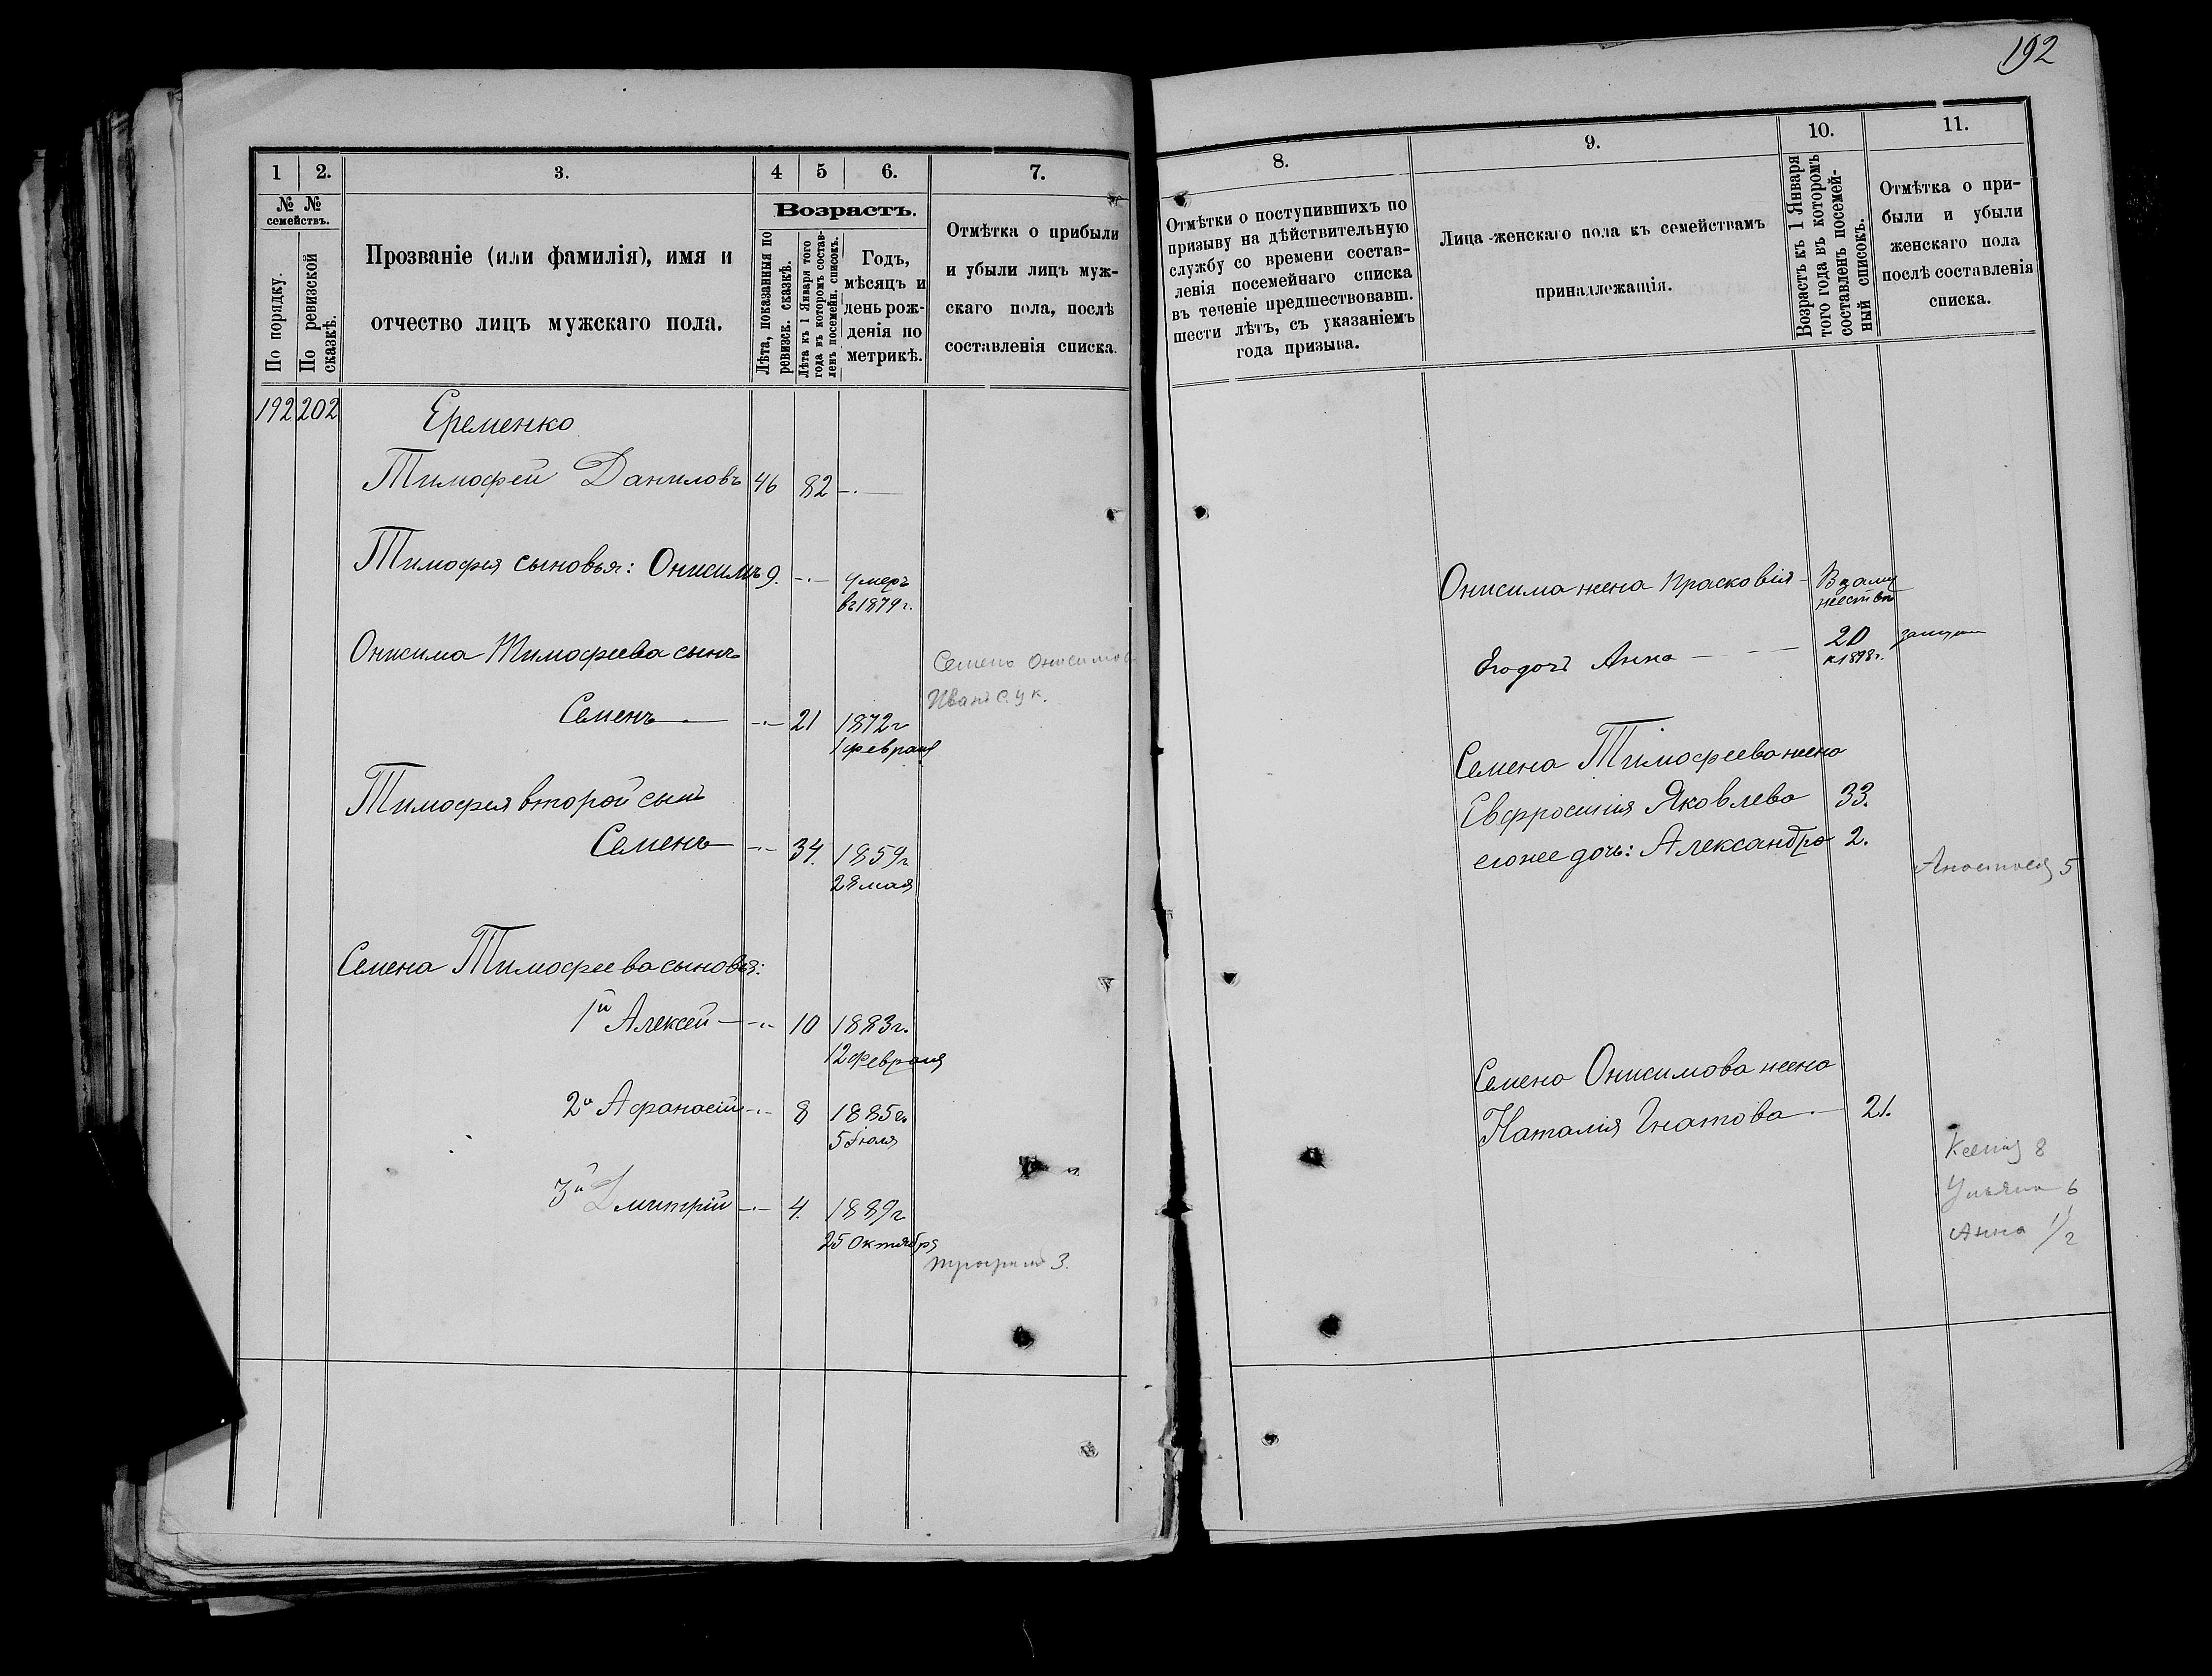 192
1
2.
3.
4
5
6.
7.
№ №
семействъ.
По порядку.
По ревизской
сказкѣ.
Прозваніе (или фамилія), имя и
отчество лицъ мужскаго пола.
Возрастъ.
Лѣта, показанныя по
ревизск. сказкѣ.
Лѣта къ 1 Января того
года въ которомъ состав-
ленъ посемейн. списокъ.
Годъ,
мѣсяцъ и
день рож-
денія по
метрикѣ.
Отмѣтка о прибыли
и убыли лицъ муж-
скаго пола, послѣ
составленія списка.
192 202 Еременко
Тимофей Даниловъ 46 82 —.—
Тимофея сыновья: Онисимъ 9. -.- умеръ
въ 1879 г.
Онисима Тимофеева сынъ
Семена Онисимов
Иванъ
Семенъ — -.- 21 1872 г
1 февраля
Тимофея второй сынъ
Семенъ — -.- 34. 1859 г
28 мая
Семена Тимофеева сыновья:
1й Алексей — -.- 10 1883 г.
12 февраля
2й Афанасій -.- 8 1885 г.
5 Іюля
3й Дмитрій -.- 4. 1889 г
25 Октября
Трофимъ 3.
8.
9.
10.
11.
Отмѣтки о поступившихъ по
призыву на дѣйствительную
службу со времени состав-
ленія посемейнаго списка
въ теченіе предшествовавш.
шести лѣтъ, съ указаніемъ
года призыва.
Лица женскаго пола къ семействамъ
принадлежащія.
Возрастъ къ 1 Января
того года въ которомъ
составленъ посемей-
ный списокъ.
Отмѣтка о при-
были и убыли
женскаго пола
послѣ составленія
списка.
Онисима жена Прасковія - В заму
жествѣ
Его дочь Анна — 20
к 1898 г.
Семена Тимофеева жена
Евфросинія Яковлева 33.
его же дочь: Александра 2.
Анастасія 5
Семена Онисимова жена
Наталія Игнатова — 21.
Ксенія 8
Ульяна 6
Анна 1/2